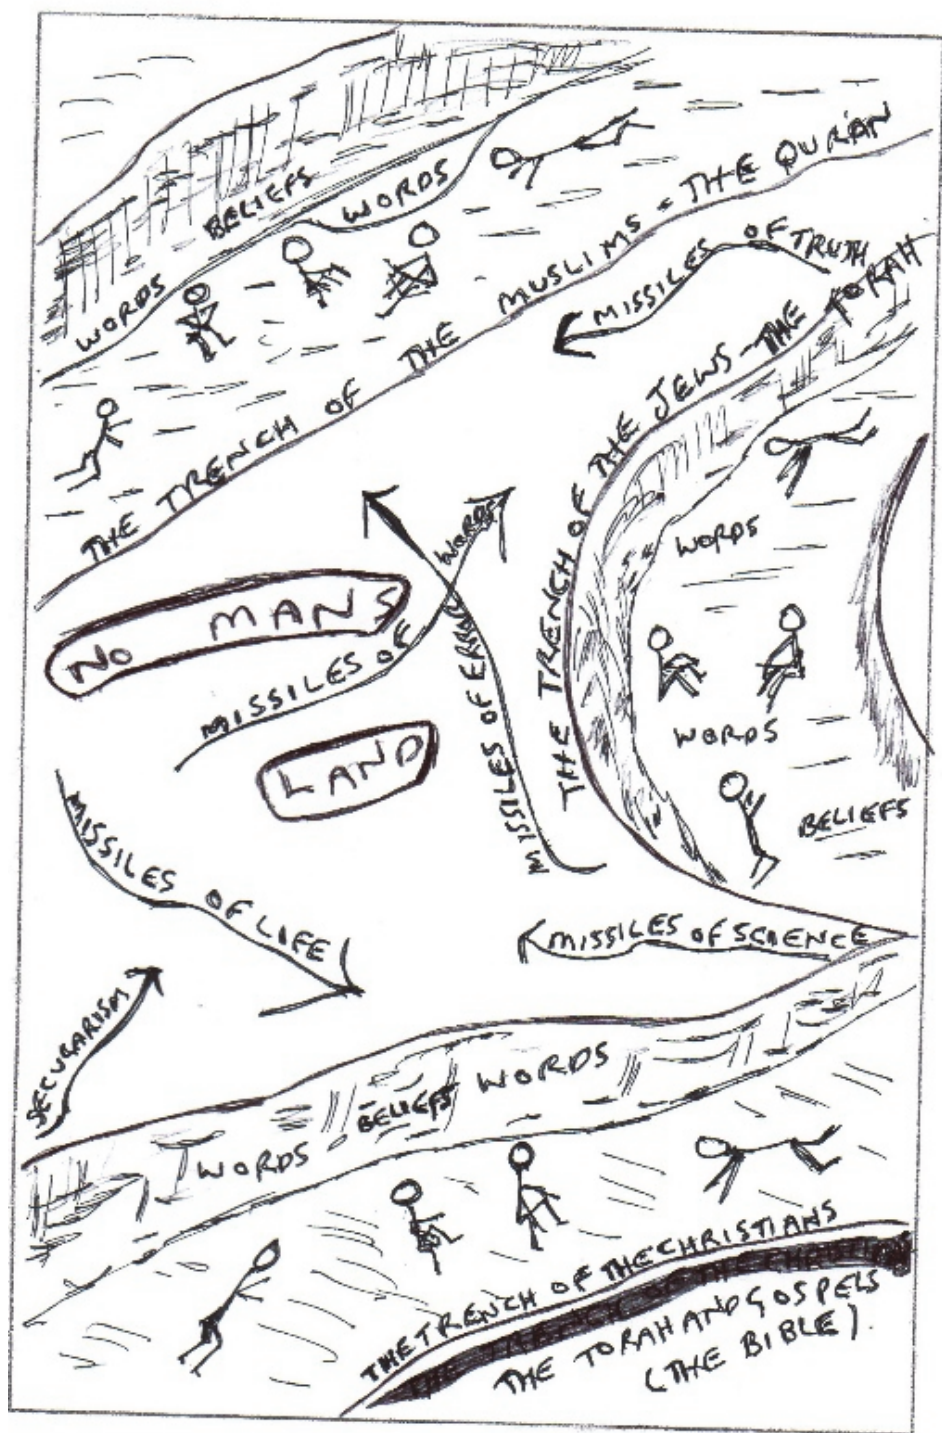 BELIEFS
WORDS
WORDS
THE TRENCH OF THE MUSLIMS = THE QURAN
MISSILES OF TRUTH
THE TRENCH OF THE JEWS - THE TORAH
WORDS
WORDS
BELIEFS
NO MANS
LAND
MISSILES OF WORDS
MISSILES OF ERROR
MISSILES OF LIFE
MISSILES OF SCIENCE
SECULARISM
WORDS BELIEFS WORDS
THE TRENCH OF THE CHRISTIANS
THE TORAH AND GOSPELS
(THE BIBLE).